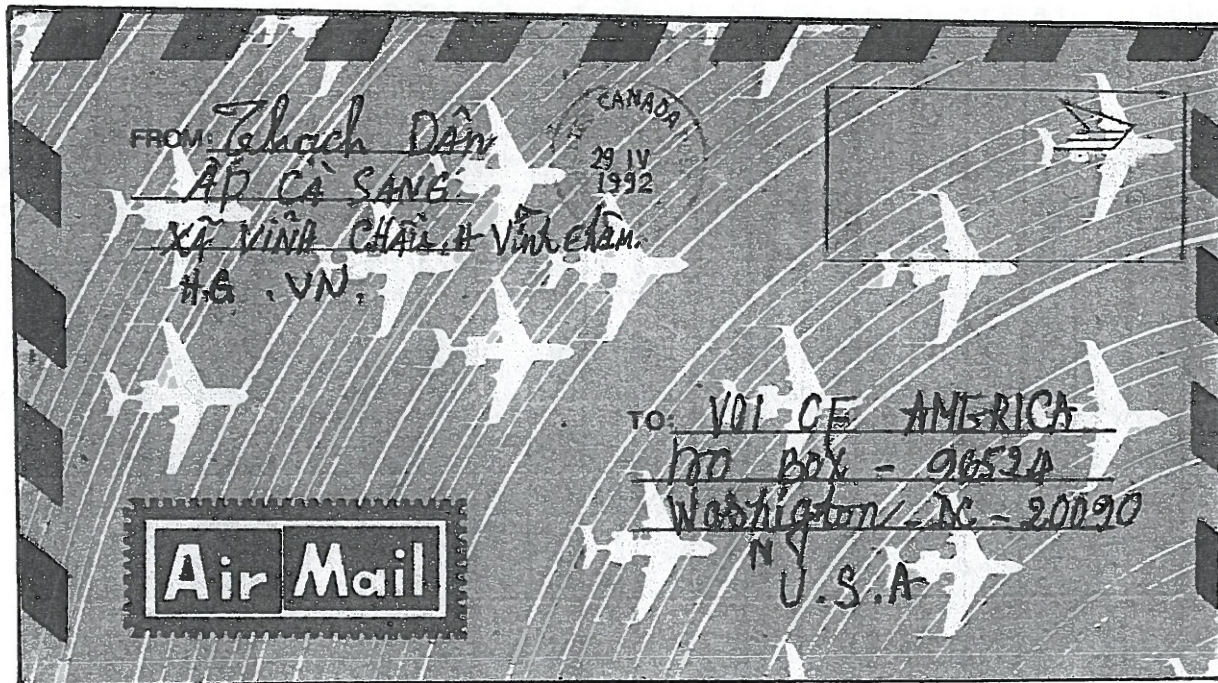 FROM: Thạch DÂN
ẤP CÀ SANG
XÃ VĨNH CHÂU. H Vĩnh Châu.
H.G. VN.
CANADA
29 IV
1992
TO: VOI CE AMERICA
BOX - 96524
Washigton - DC - 20090
N
U.S.A
Air Mail